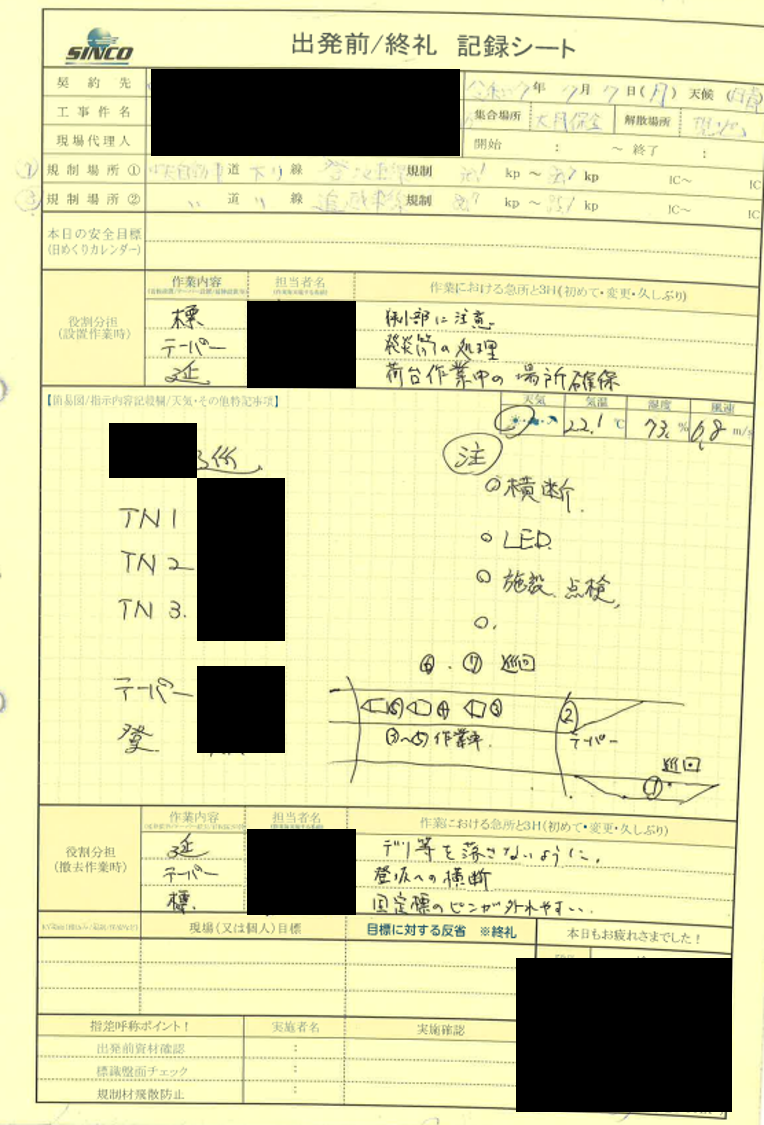 SINCO
出発前/終礼 記録シート
契約先
年 7月 7日(月) 天候 (晴)
工事件名
集合場所 大月保全 解散場所
現場代理人
開始 : ～ 終了 :
規制場所① 道 下り 線 規制 kp ～ kp IC～ IC
規制場所② 〃 道 〃 線 追越車線 規制 kp ～ kp IC～ IC
本日の安全目標
(日めくりカレンダー)
役割分担
(設置作業時)
作業内容 担当者名 作業における急所と3H(初めて・変更・久しぶり)
標 側部に注意
テーパー 発炎筒の処理
延 荷台作業中の場所確保
【簡易図/指示内容記録欄/天気・その他特記事項】
天気 気温 湿度 風速
22.1 ℃ 73. % 0.8 m/s
注
○横断.
TN1
○ LED.
TN2
○ 施設.点検,
TN3.
○.
⑥.⑦ 巡回
テーパー
登.
⑤ ④ ③ ②
③～⑤ 作業車. テーパー
巡回
①
役割分担
(撤去作業時)
作業内容 担当者名 作業における急所と3H(初めて・変更・久しぶり)
延 デリ等を落さないように.
テーパー 登坂への横断
標. 固定標のピンが外れやすい..
現場(又は個人)目標 目標に対する反省 ※終礼 本日もお疲れさまでした!
指差呼称ポイント! 実施者名 実施確認
出発前資材確認 :
標識盤面チェック :
規制材飛散防止 :